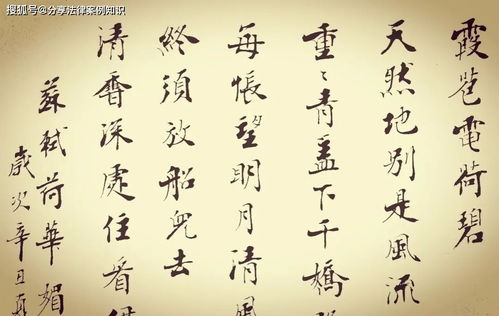 搜狐号@分享法律案例知识
霞苞電荷碧
天然地别是風流
重〻青盖下千嬌
每悵望明月清風
終須放船兒去
清香深處住看伊
蘇軾荷華媚
歲次辛丑